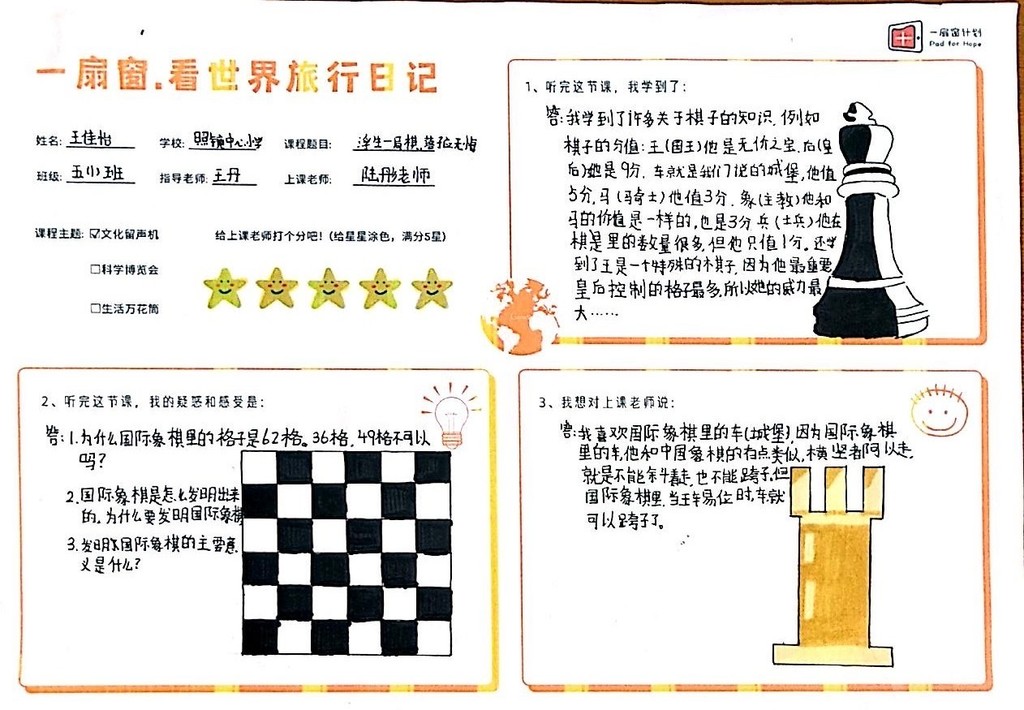 一扇窗计划
Pad for Hope
一扇窗.看世界旅行日记
姓名: 王佳怡 学校: 照镜中心小学 课程题目: 浮生一局棋,落孤无悔
班级: 五(1)班 指导老师: 王丹 上课老师: 陆彤老师
课程主题: ☑文化留声机
□科学博览会
□生活万花筒
给上课老师打个分吧!(给星星涂色,满分5星)
1、听完这节课,我学到了:
答:我学到了许多关于棋子的知识.例如
棋子的分值:王(国王)他是无价之宝.后(皇
后)她是9分.车就是我们说的城堡,他值
5分,马(骑士)他值3分.象(主教)他和
马的价值是一样的,也是3分 兵(士兵)他在
棋是里的数量很多,但他只值1分。还学
到了王是一个特殊的木棋子,因为他最重要
皇后控制的格子最多,所以她的威力最
大……
2、听完这节课,我的疑惑和感受是:
答:1.为什么国际象棋里的格子是62格。36格,49格不可以
吗?
2.国际象棋是怎么发明出来
的,为什么要发明国际象棋
3.发明国际象棋的主要意
义是什么?
3、我想对上课老师说:
答:我喜欢国际象棋里的车(城堡),因为国际象棋
里的车,他和中国象棋的有点类似,横竖都可以走,
就是不能斜着走,也不能跨子,但
国际象棋里,当王车易位时,车就
可以跨子了。